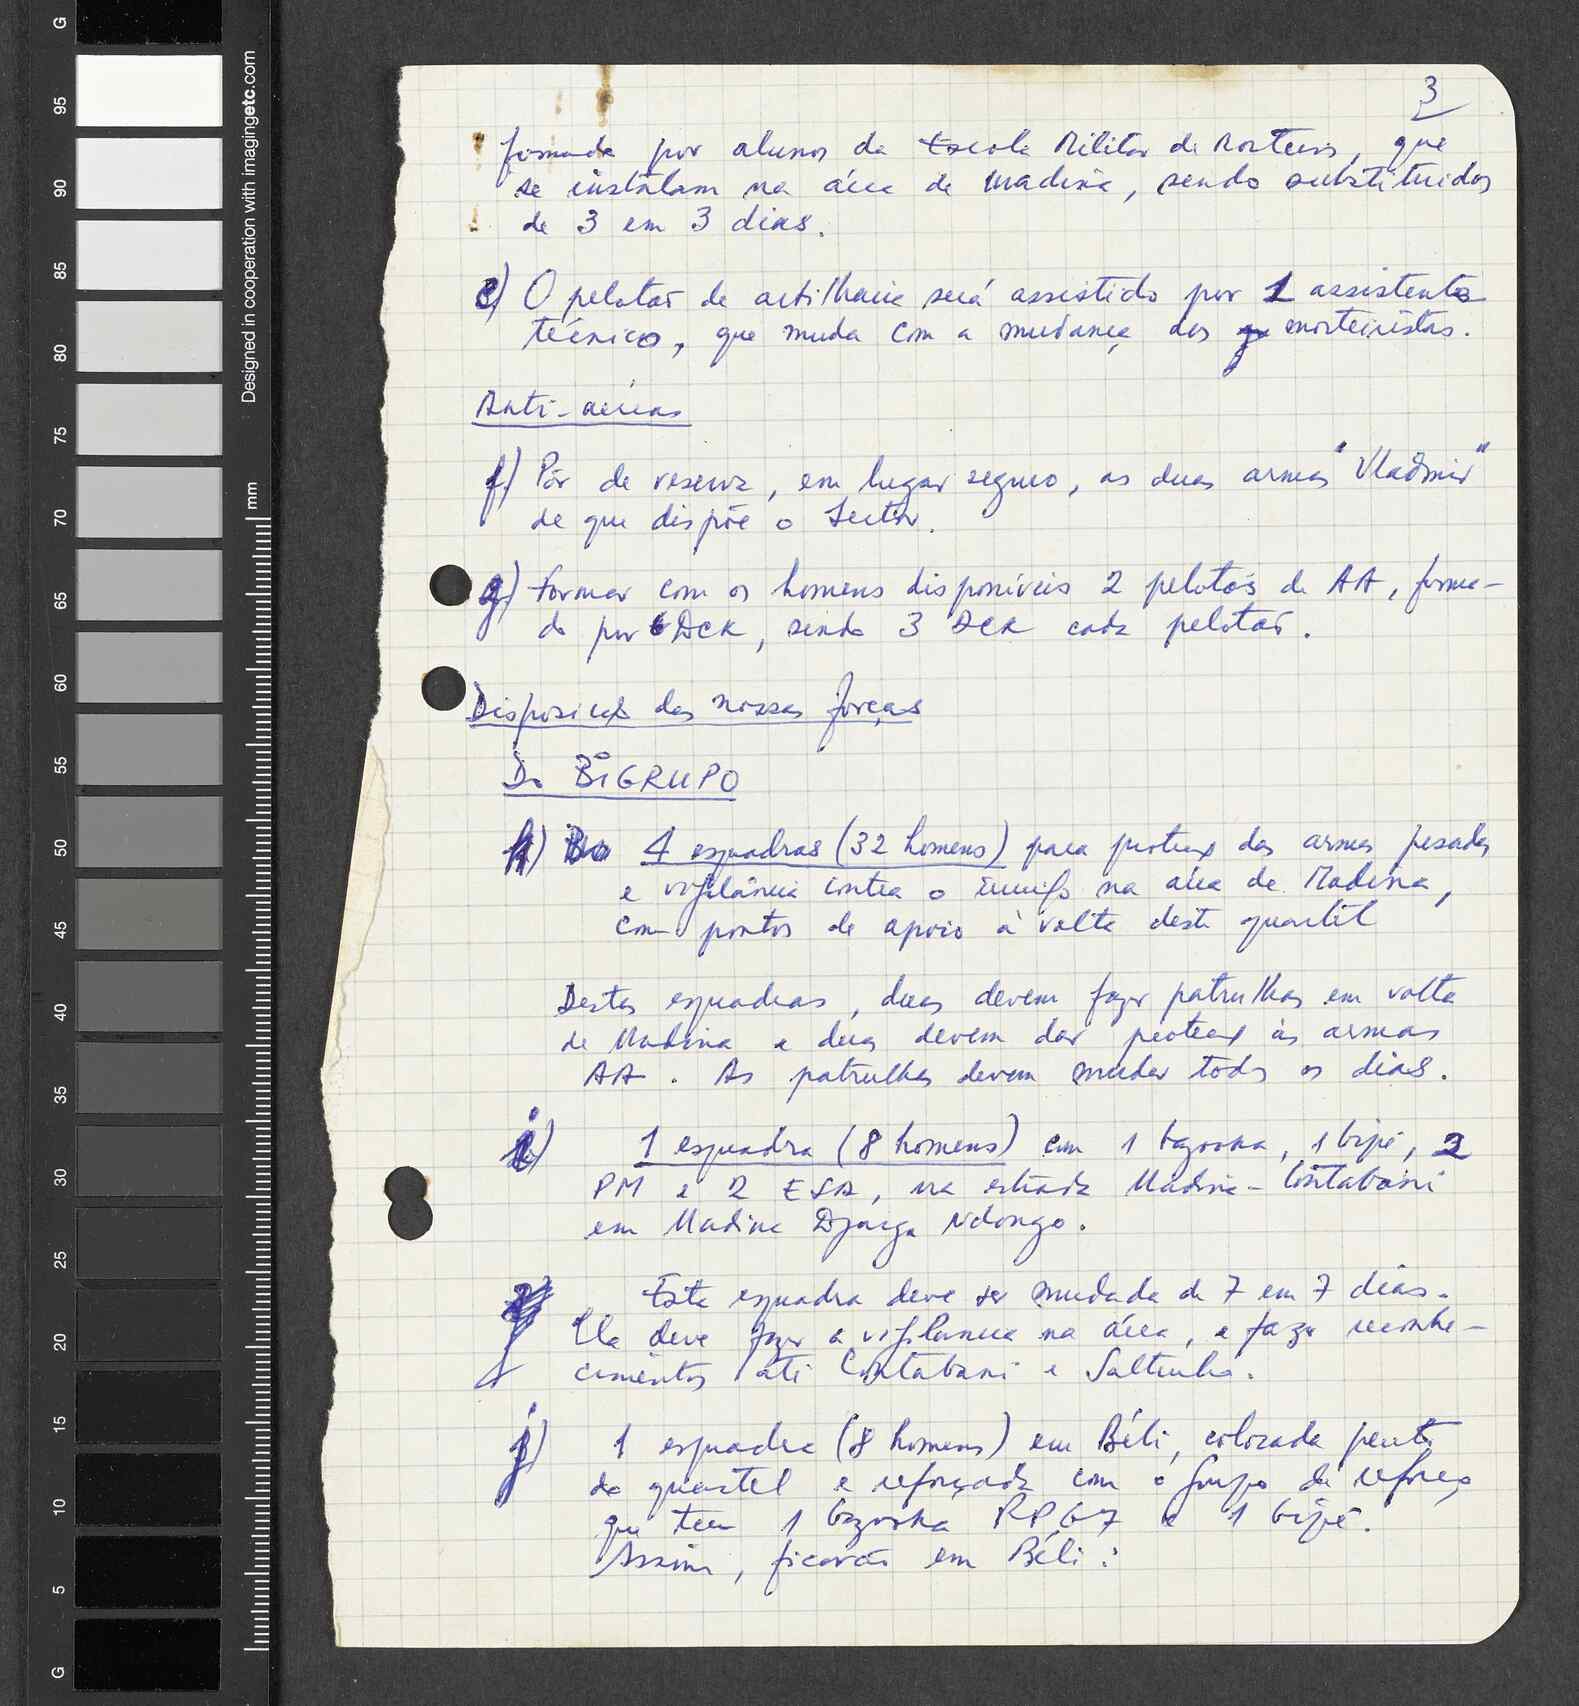 3
formada por alunos da Escola Militar de Morteiros, que
se instalam na área de Madina, sendo substituídos
de 3 em 3 dias.
e) O pelotão de artilharia será assistido por 1 assistente
técnico, que muda com a mudança dos morteiristas.
Anti-aéreas
f) Pôr de reserva, em lugar seguro, as duas armas "Vladimir"
de que dispõe o Sector.
g) Formar com os homens disponíveis 2 pelotões de AA, forma-
do por 6 DCK, sendo 3 DCK cada pelotão.
Disposição das nossas forças
Do BIGRUPO
h) 4 esquadras (32 homens) para protecção das armas pesadas
e vigilância contra o inimigo na área de Madina,
com pontos de apoio à volta deste quartel
Destas esquadras, duas devem fazer patrulhas em volta
de Madina e duas devem dar protecção às armas
AA. As patrulhas devem mudar todos os dias.
i) 1 esquadra (8 homens) com 1 bazooka, 1 bipé, 2
PM e 2 ESA, na estrada Madina-Contabani
em Madina Djarga Ndongo.
Esta esquadra deve ser mudada de 7 em 7 dias.
Ela deve fazer a vigilância na área, e fazer reconhe-
cimentos até Contabani e Saltinho.
j) 1 esquadra (8 homens) em Béli, colocada perto
do quartel e reforçada com o grupo de reforço
que tem 1 bazooka RPG7 e 1 bipé.
Assim, ficarão em Béli:
Designed in cooperation with imagingetc.com
mm
G
95
90
85
80
75
70
65
60
55
50
45
40
35
30
25
20
15
10
5
G